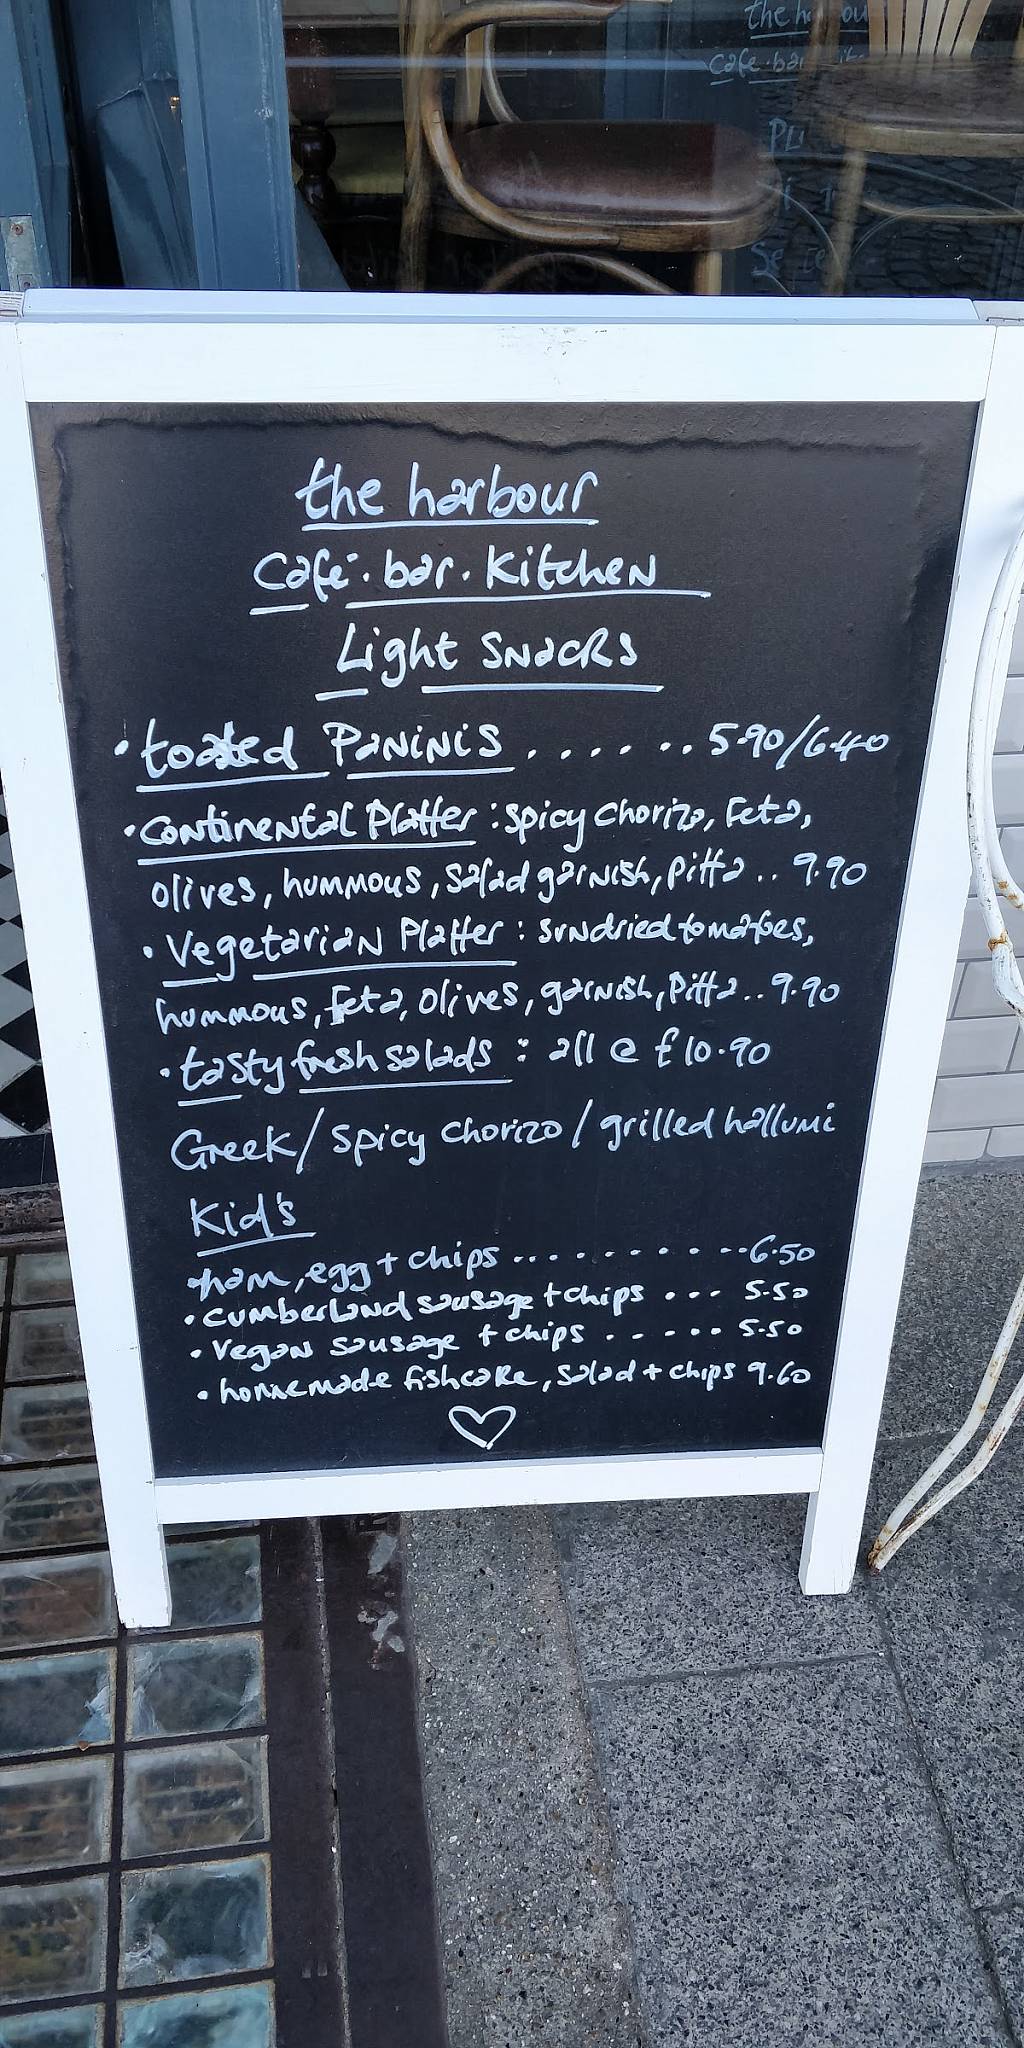 the harbour
café · bar · kitchen
Light snacks
• toasted Paninis . . . . . . . 5.90/6.40
• Continental Platter : spicy chorizo, feta,
olives, hummous, salad garnish, pitta .. 9.90
• Vegetarian Platter : sundried tomatoes,
hummous, feta, olives, garnish, pitta .. 9.90
• tasty fresh salads : all @ £10.90
Greek / spicy chorizo / grilled hallumi
Kid's
ham, egg + chips ............ 6.50
• cumberland sausage + chips ... 5.50
• vegan sausage + chips ...... 5.50
• homemade fishcake, salad + chips 9.60